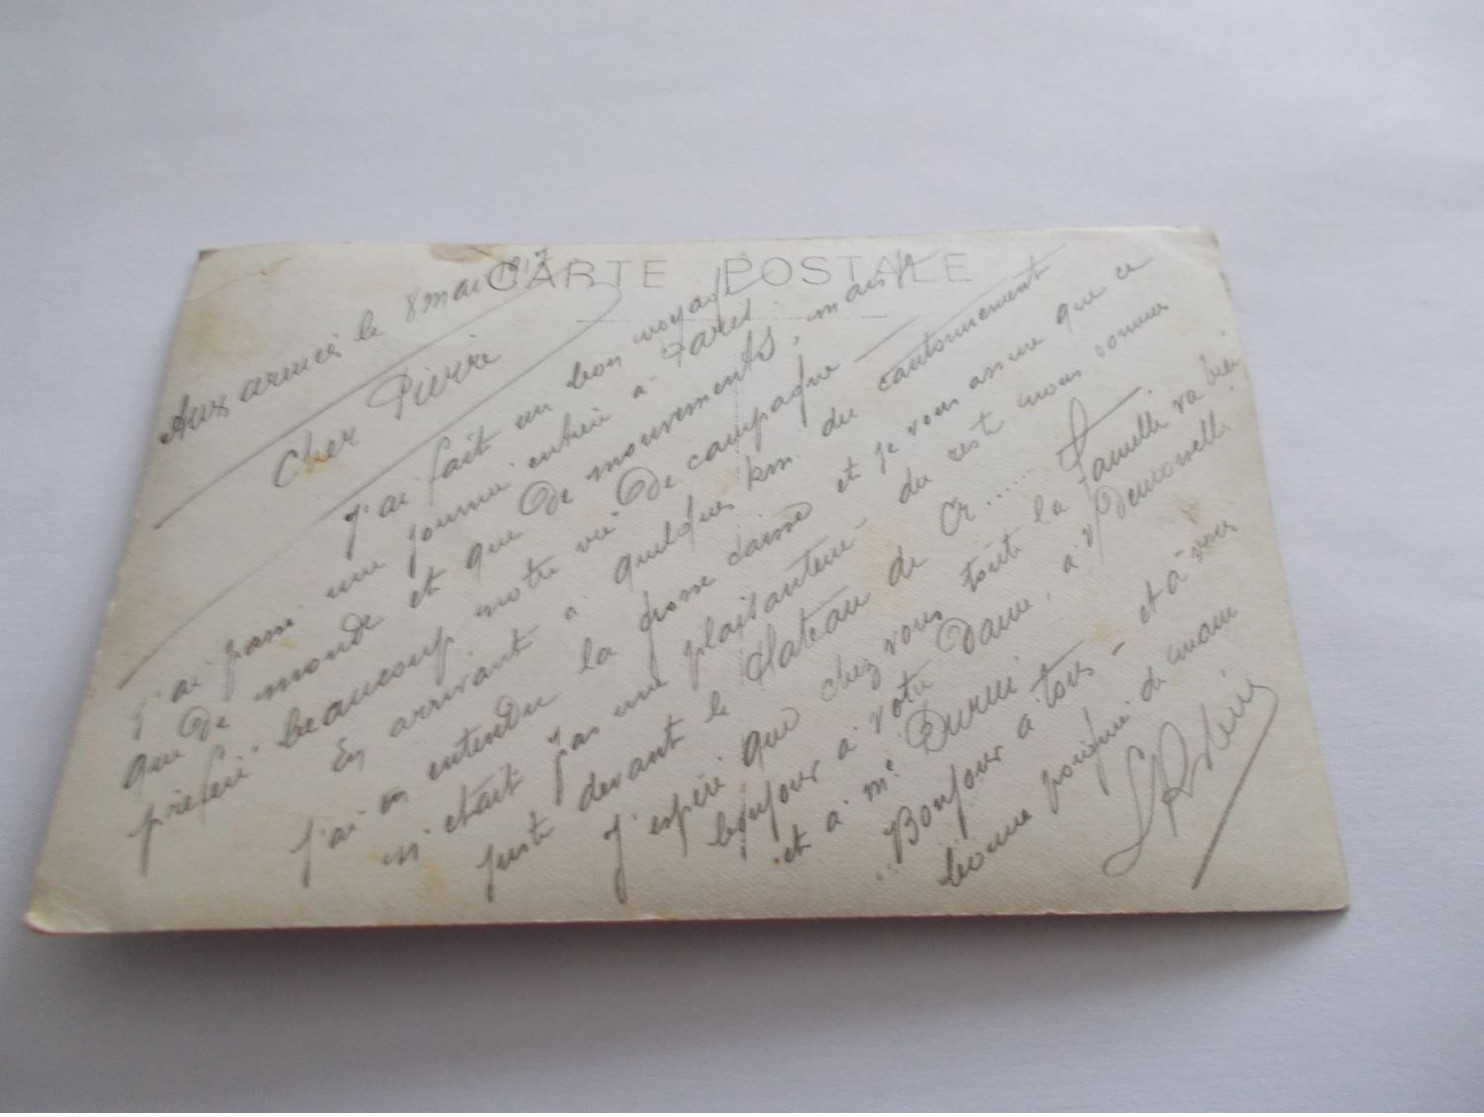 CARTE POSTALE
Aux armées le 8 mai 1917
Cher Pierre
J'ai fait un bon voyage
J'ai passé une journée entière à Paris.
que de monde et que de mouvements, mais je
préfère beaucoup notre vie de campagne
En arrivant à quelques km. du cantonnement
j'ai entendu la grosse caisse et je vous assure que ce
n'était pas une plaisanterie - du rest nous sommes
juste devant le plateau de Cr......
J'espère que chez vous toute la famille va bien
bonjour à votre Dame, à Demoiselle
et à Mr
Bonjour à tous - et à vous
bonne poignée de main